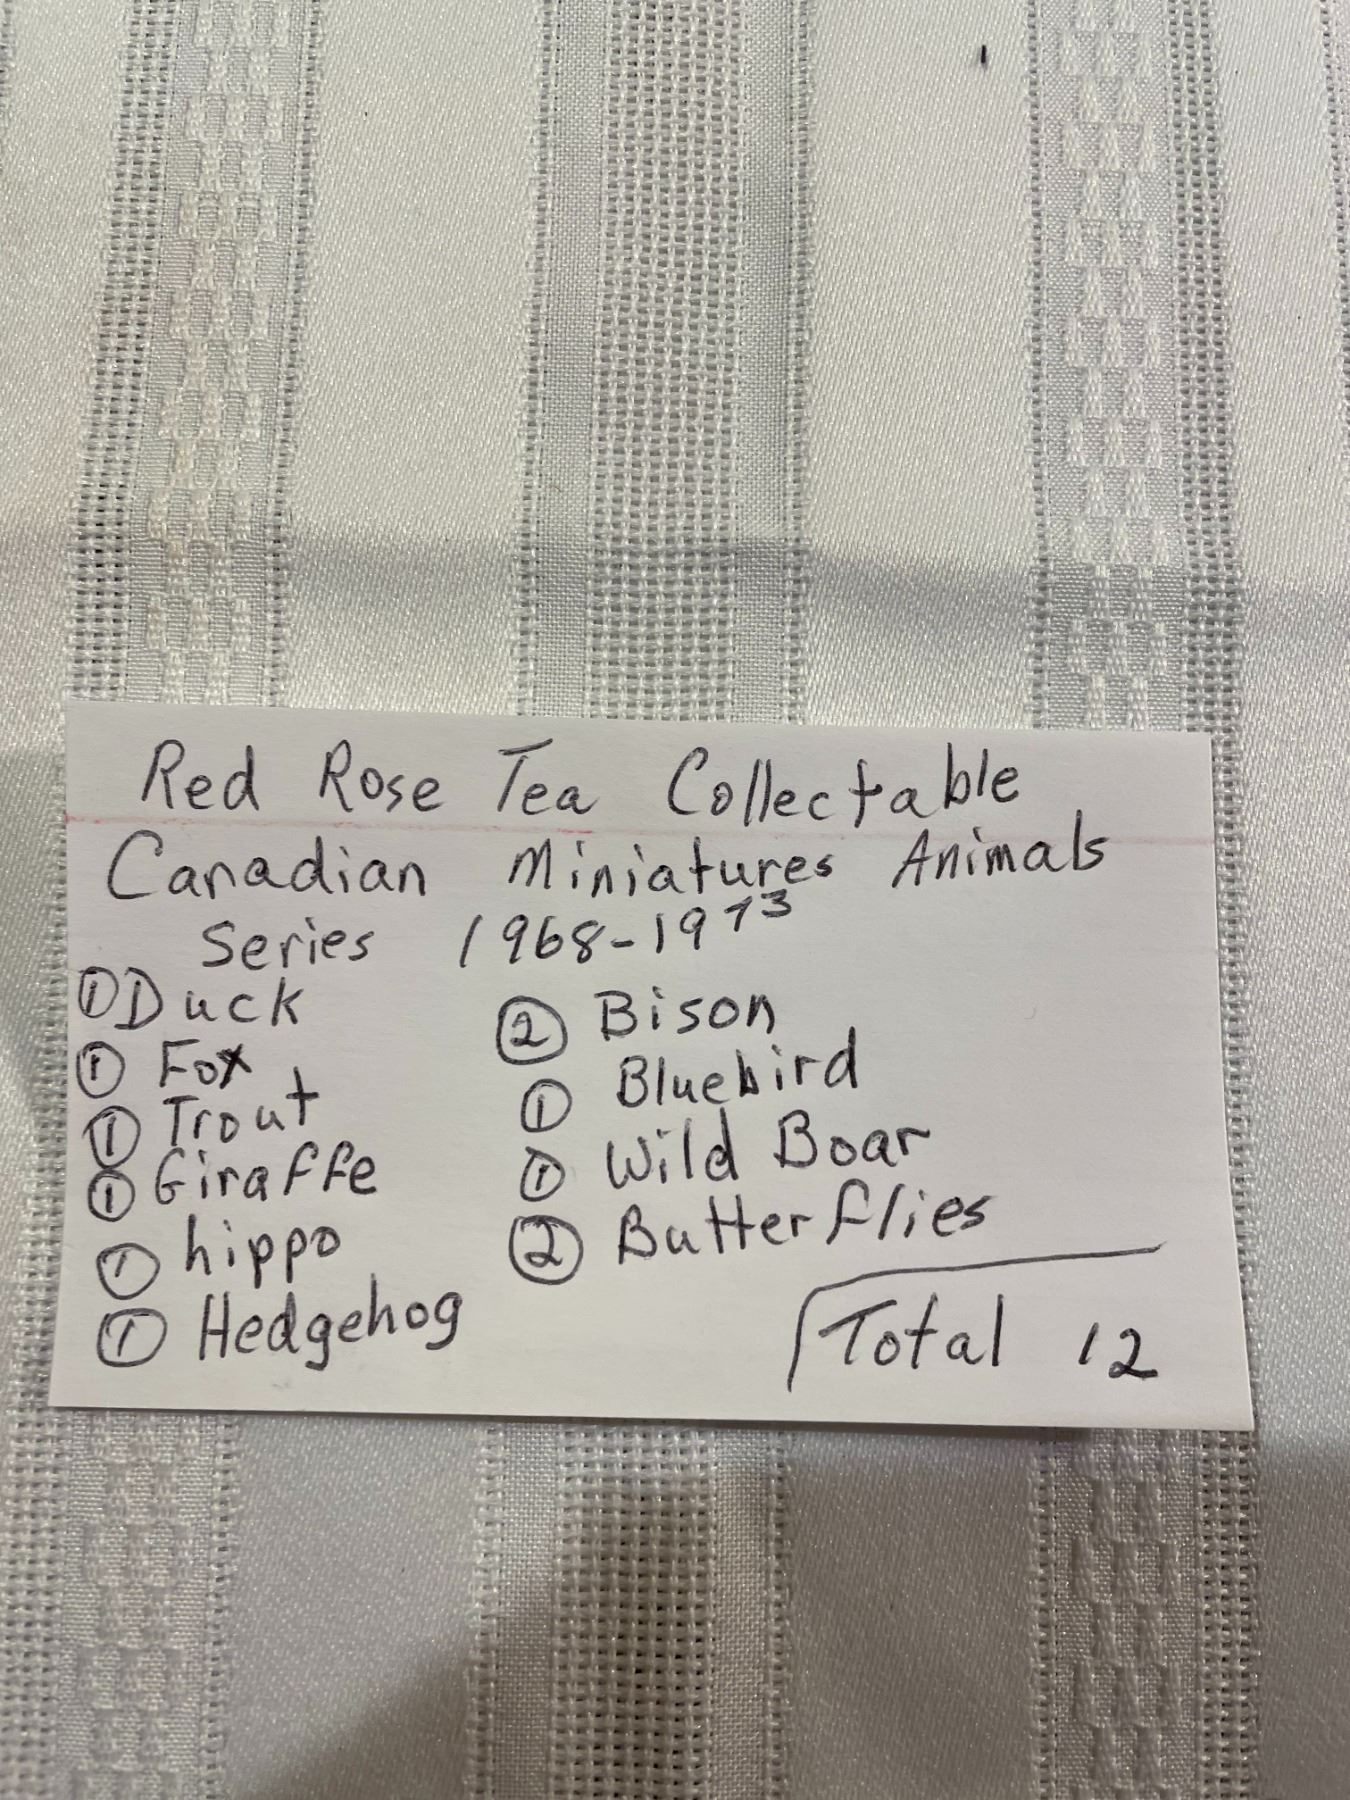 Red Rose Tea Collectable
Canadian Miniatures Animals
Series 1968-1973
① Duck
① Fox
① Trout
① Giraffe
① hippo
① Hedgehog
② Bison
① Bluebird
① Wild Boar
② Butterflies
Total 12